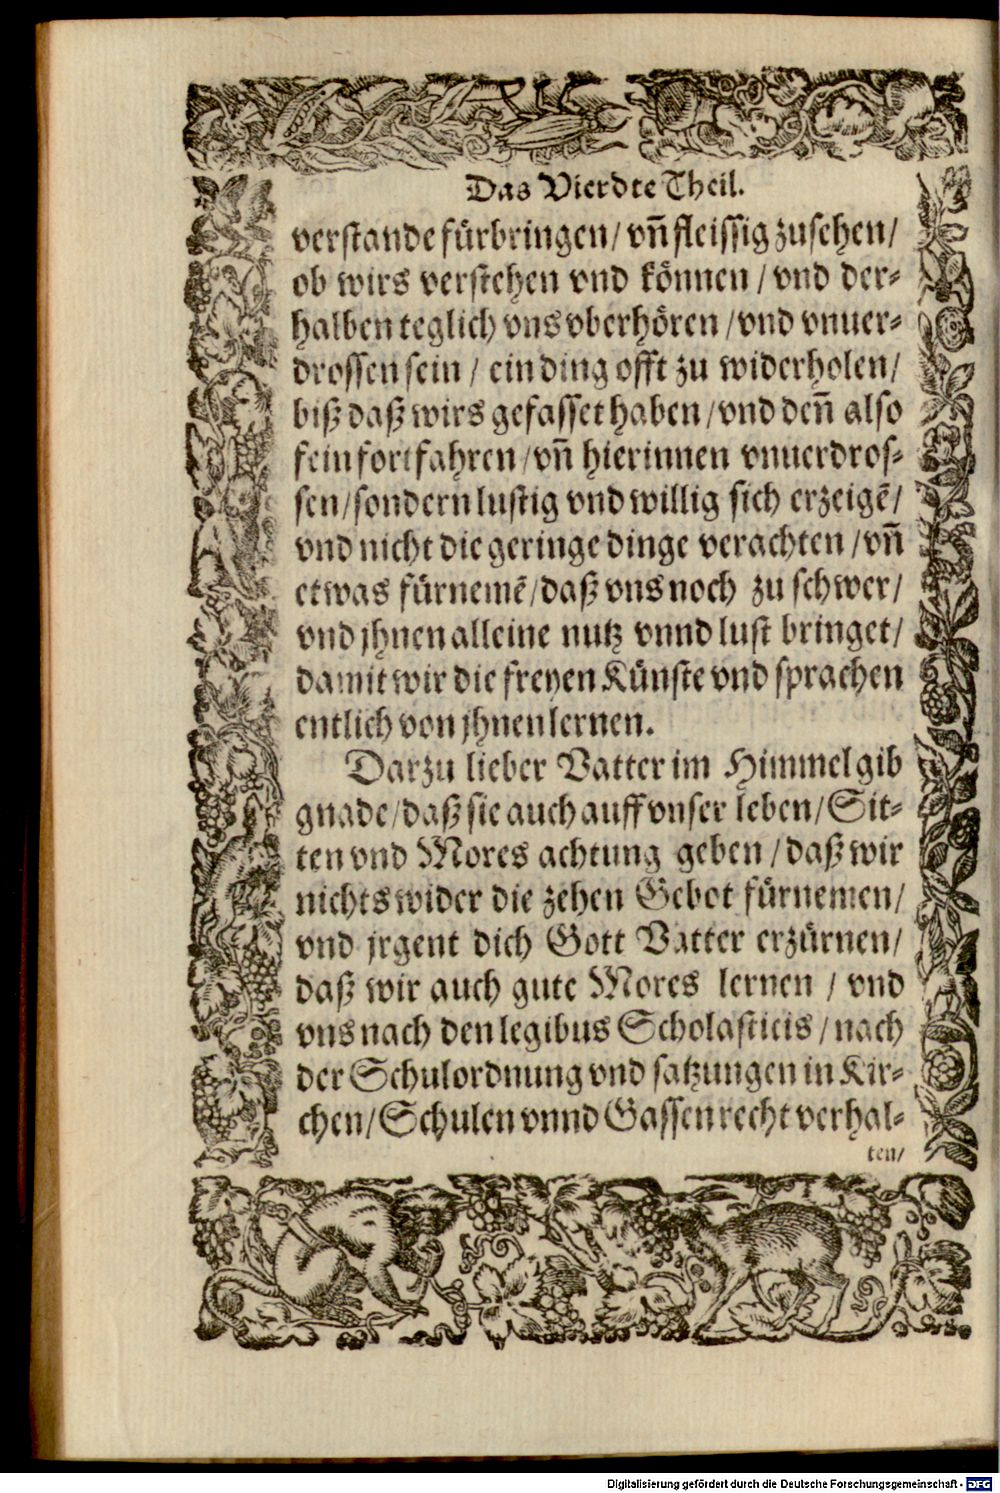 Das Vierdte Theil.
verstande fürbringen/ vn̄ fleissig zusehen/
ob wirs verstehen vnd können / vnd der⸗
halben teglich vns vberhören / vnd vnuer⸗
drossen sein / ein ding offt zu widerholen/
biß daß wirs gefasset haben / vnd den̄ also
fein fortfahren / vn̄ hierinnen vnuerdros⸗
sen/ sondern lustig vnd willig sich erzeigē/
vnd nicht die geringe dinge verachten / vn̄
etwas fürnemē/ daß vns noch zu schwer/
vnd jhnen alleine nutz vnnd lust bringet/
damit wir die freyen Künste vnd sprachen
entlich von jhnen lernen.
Darzu lieber Vatter im Himmel gib
gnade/ daß sie auch auff vnser leben/ Sit⸗
ten vnd Mores achtung geben / daß wir
nichts wider die zehen Gebot fürnemen/
vnd jrgent dich Gott Vatter erzürnen/
daß wir auch gute Mores lernen / vnd
vns nach den legibus Scholasticis / nach
der Schulordnung vnd satzungen in Kir⸗
chen/ Schulen vnnd Gassen recht verhal⸗
ten/
Digitalisierung gefördert durch die Deutsche Forschungsgemeinschaft - DFG